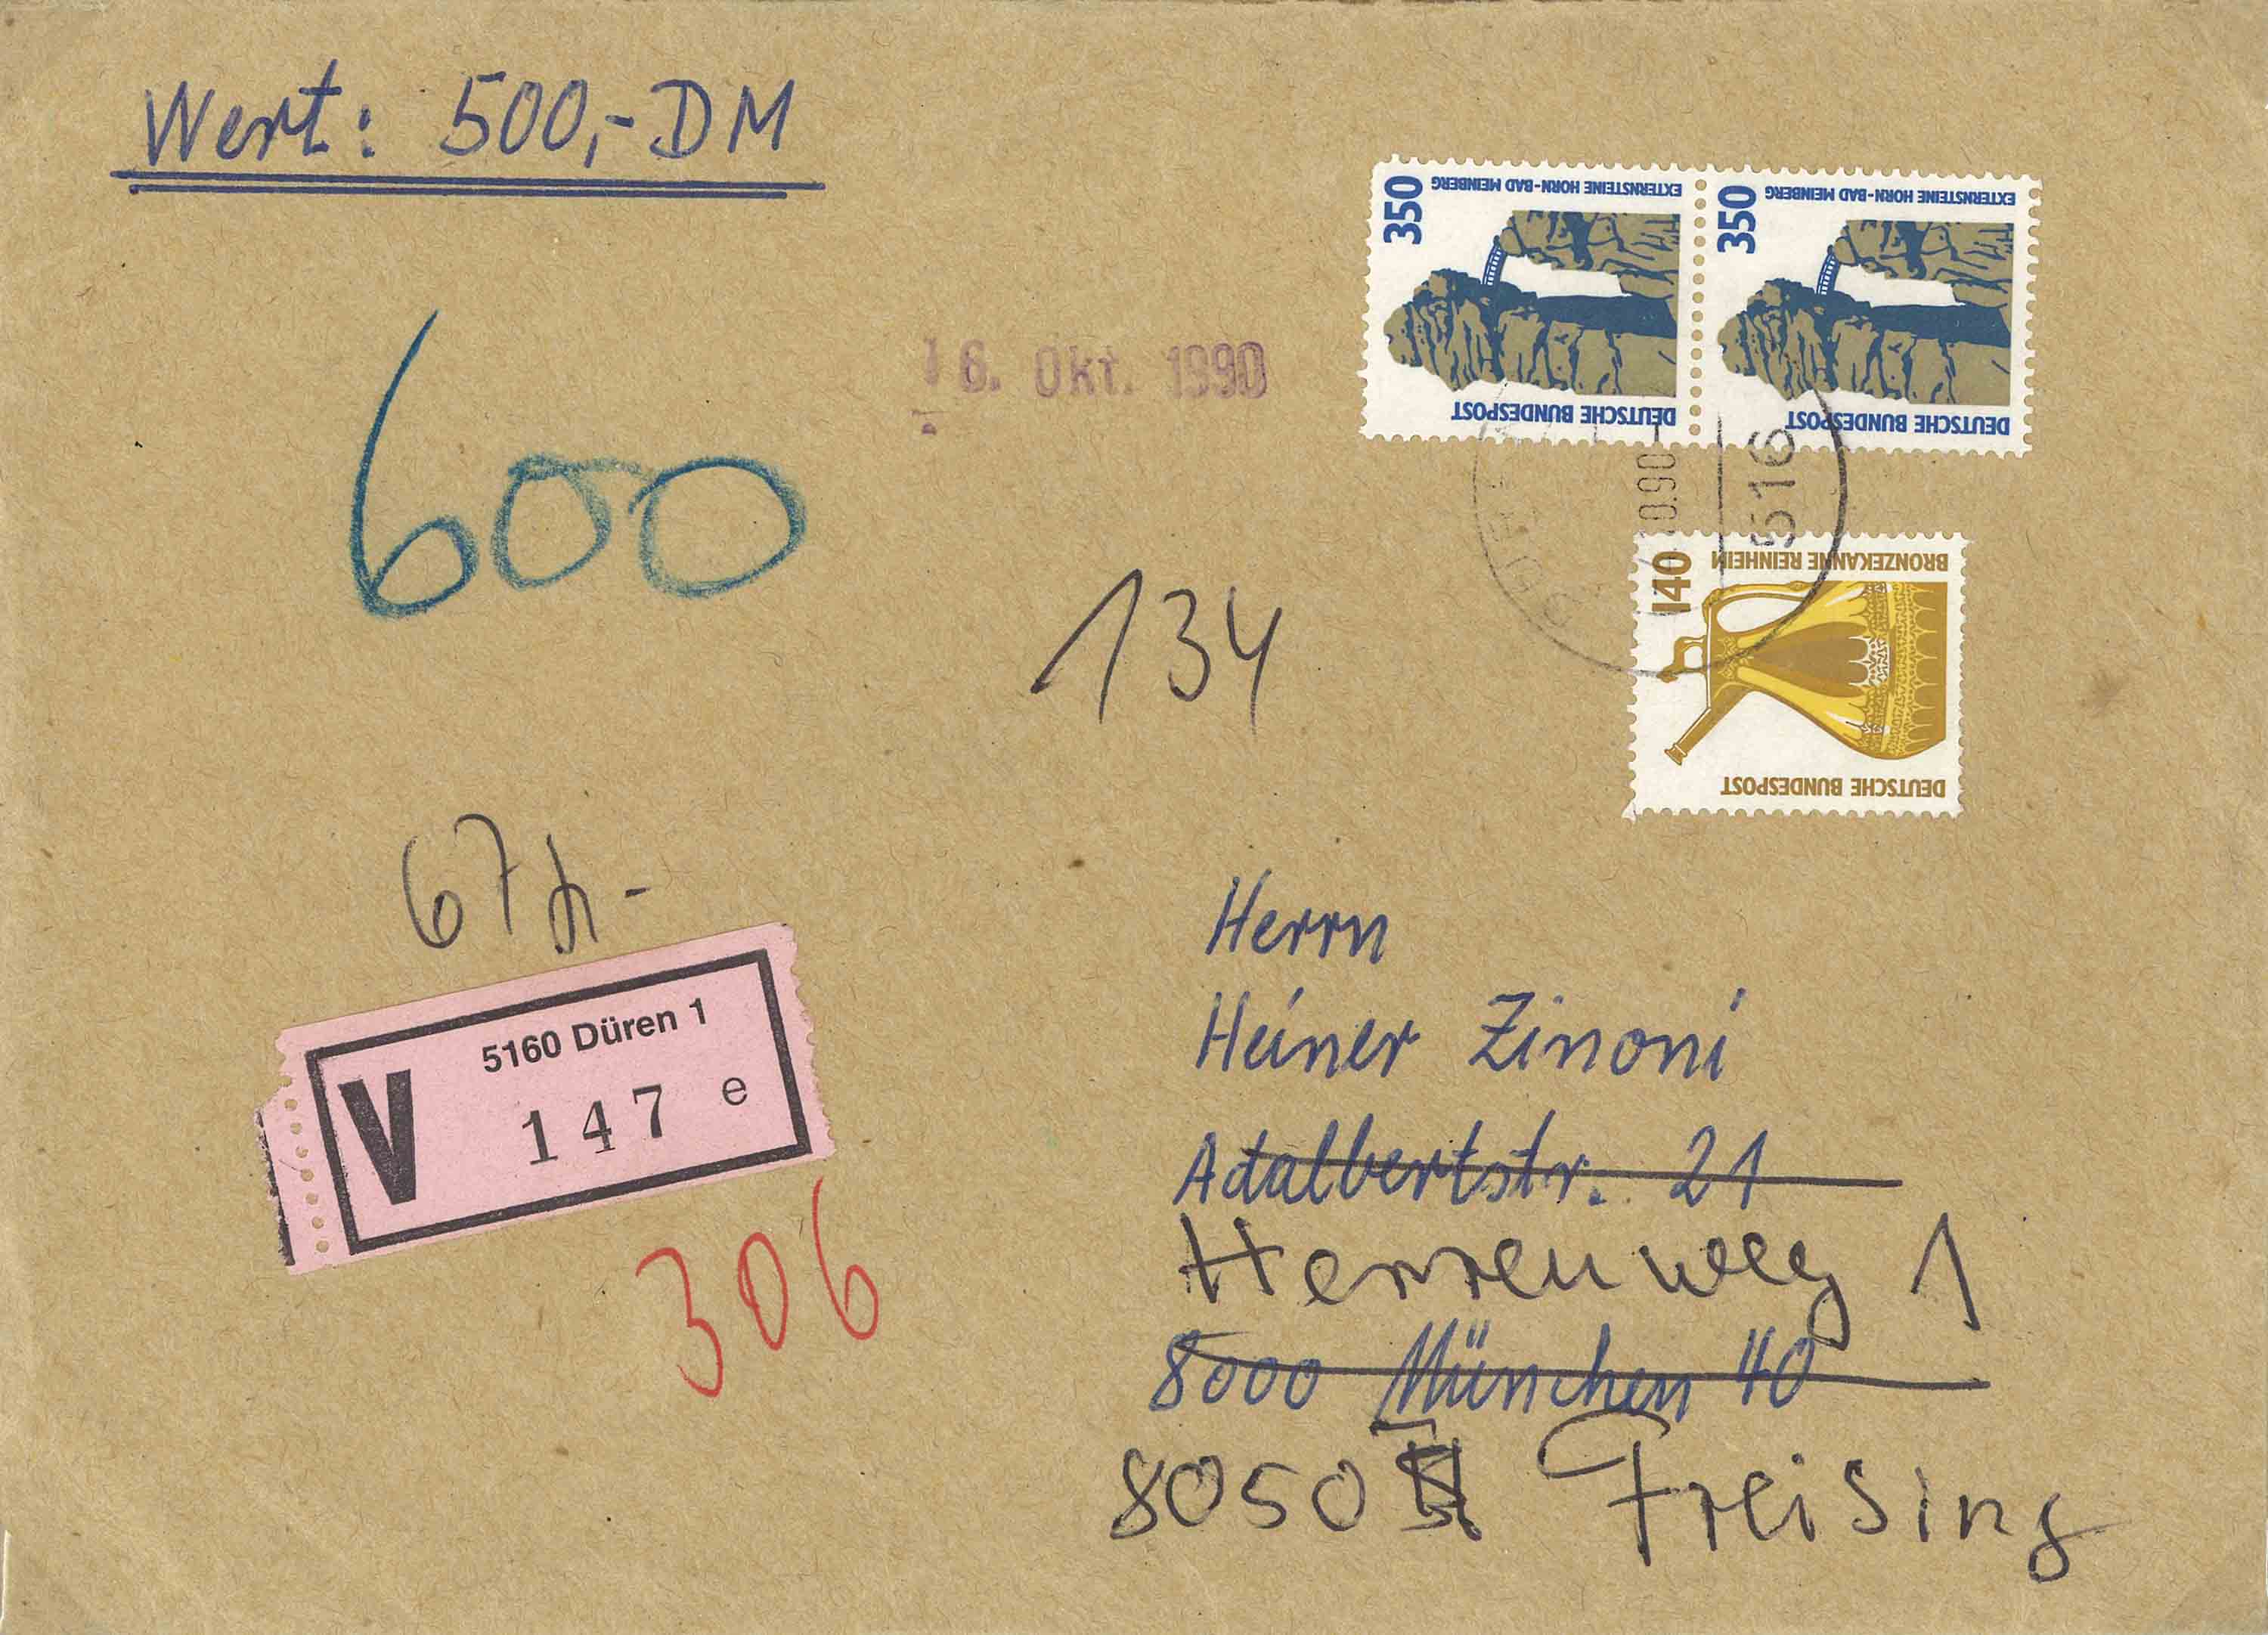 Wert: 500,- DM
350
EXTERNSTEINE HORN-BAD MEINBERG
DEUTSCHE BUNDESPOST
350
EXTERNSTEINE HORN-BAD MEINBERG
DEUTSCHE BUNDESPOST
16. Okt. 1990
600
.90
516
140
BRONZEKANNE REINHEIM
DEUTSCHE BUNDESPOST
134
67
V
5160 Düren 1
147 e
306
Herrn
Heiner Zinoni
Adalbertstr. 21
Herrenweg 1
8000 München 40
8050 Freising